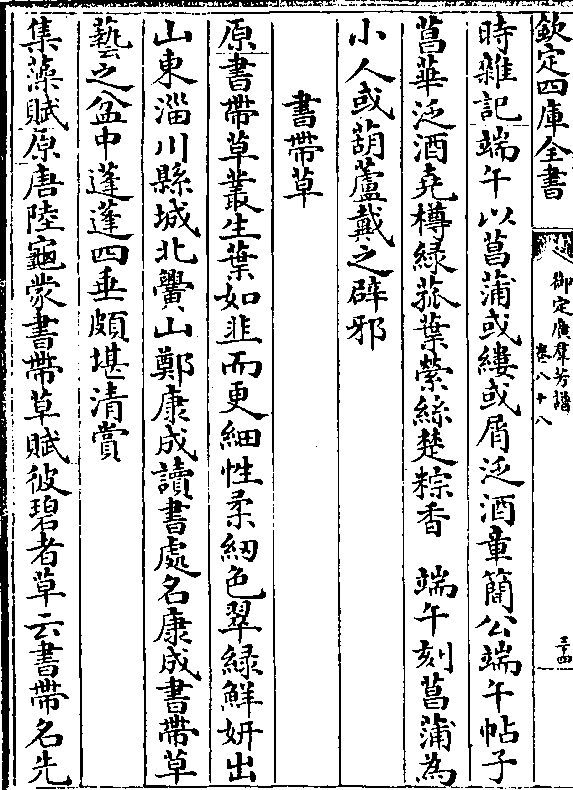 欽定四庫全書
御定廣羣芳譜
卷八十八
三十四
時雜記端午以菖蒲或縷或屑泛酒章簡公端午帖子
菖華泛酒堯樽綠菰葉縈絲楚粽香　端午刻菖蒲為
小人或葫蘆戴之辟邪
書帶草
原書帶草叢生葉如韭而更細性柔紉色翠綠鮮妍出
山東淄川縣城北黌山鄭康成讀書處名康成書帶草
藝之盆中蓬蓬四垂頗堪清賞
集藻賦原唐陸龜蒙書帶草賦彼碧者草云書帶名先